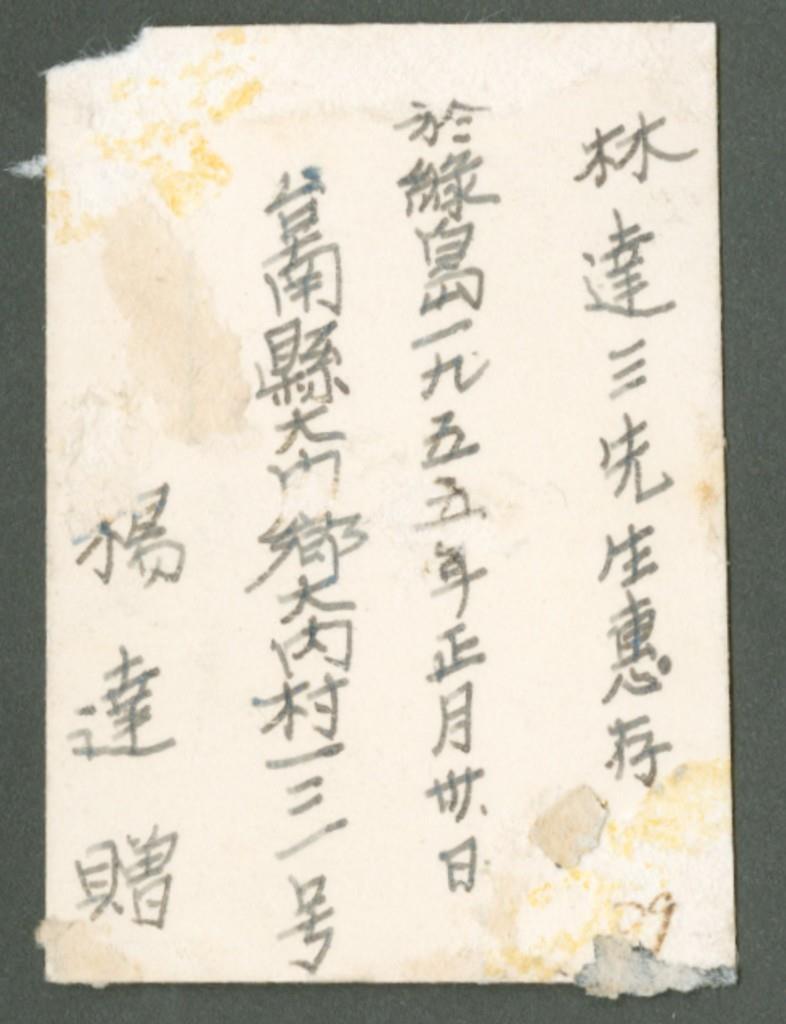 林達三先生惠存
於綠島一九五五年正月卅日
台南縣大內鄉大內村一三一号
楊達贈
29